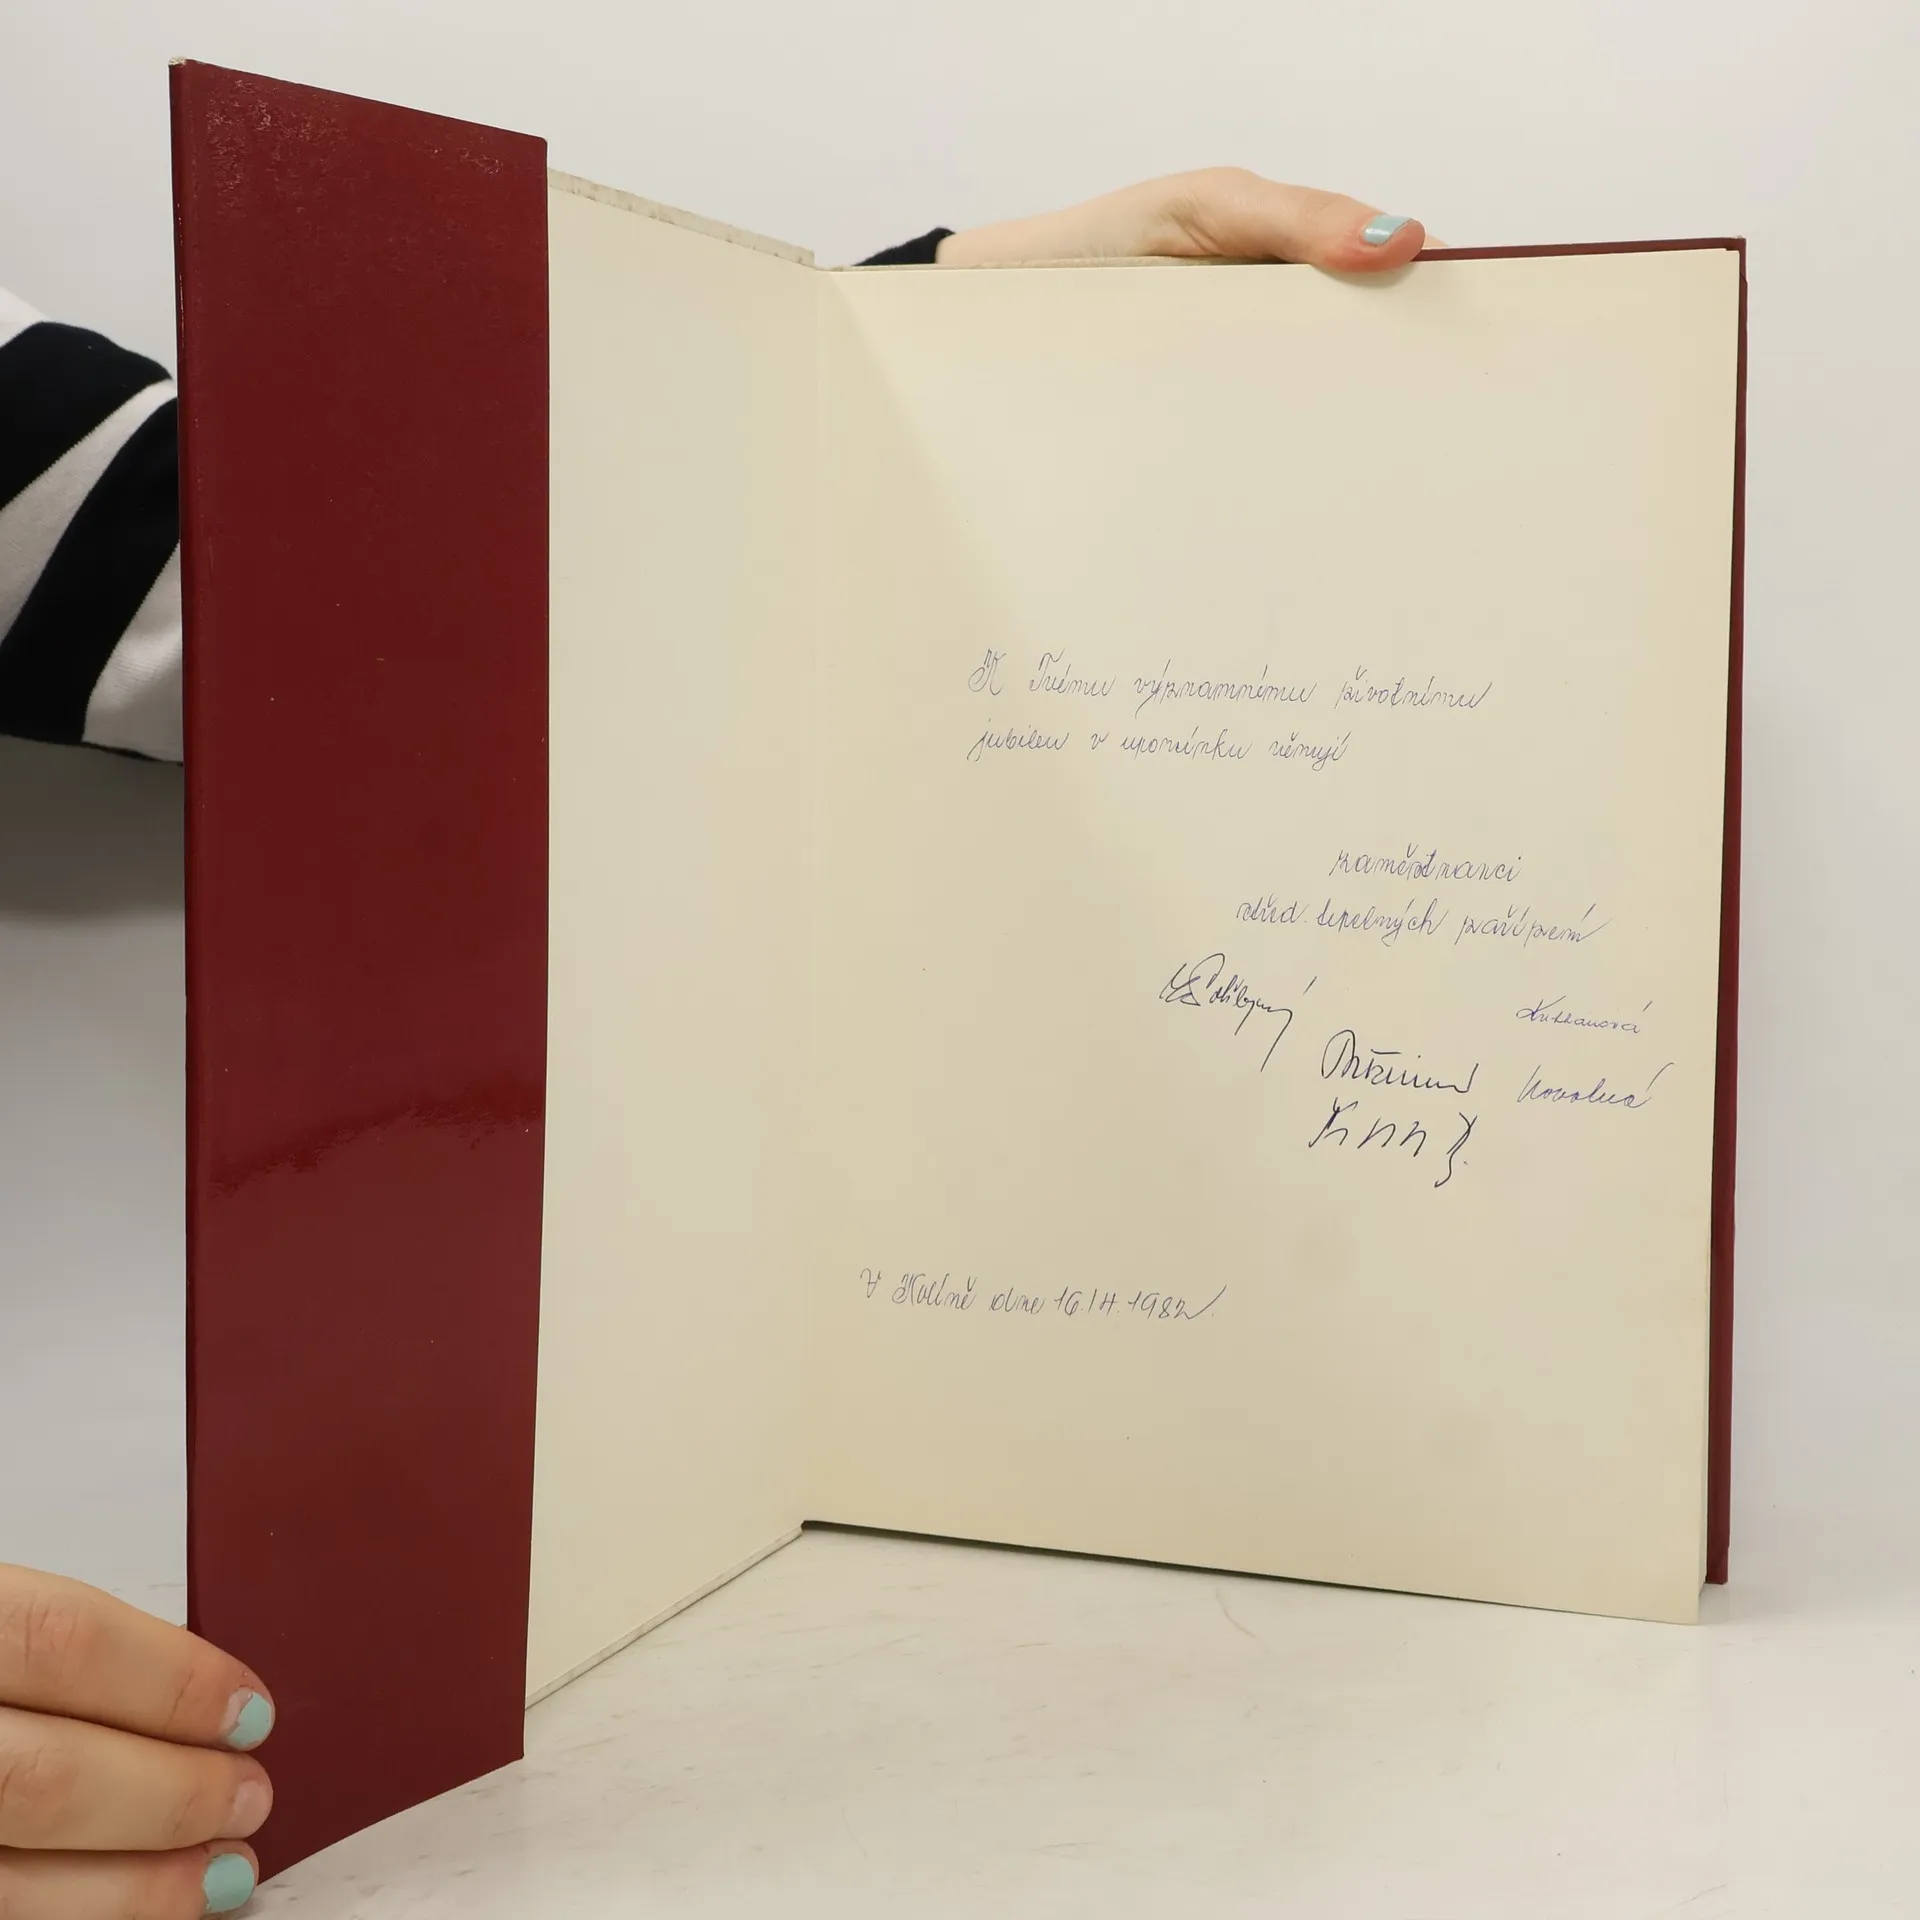 K Tvému významnému životnímu
jubileu v upomínku věnují
zaměstnanci
střed. tepelných zařízení
V Kolíně dne 16.IV.1982.